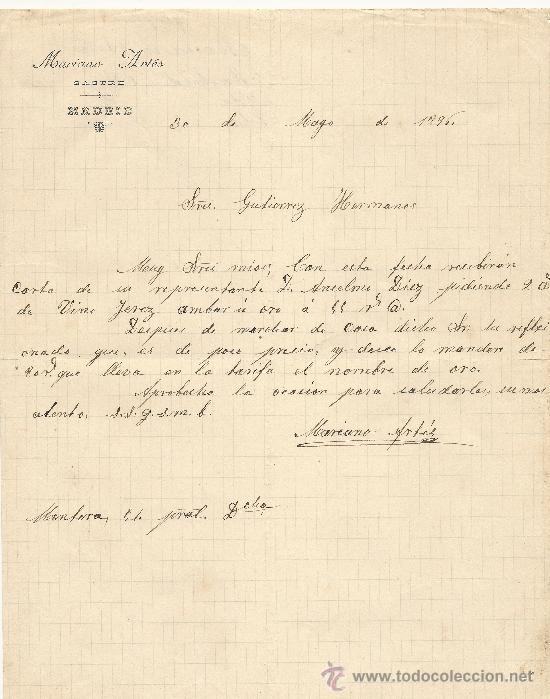 Mariano Artés
SASTRE
MADRID
30 de Mayo de 1896.
Sres. Gutierrez Hermanos
Muy Sres mios; Con esta fecha recibirán
carta de su representante D. Anselmo Diez pidiendo 2 @
de Vino Jerez ambar ú oro á 55 rs @.
Despues de marchar de casa dicho Sr. he reflex
ionado que es de poco precio, y deseo lo manden de
que lleva en la tarifa el nombre de oro.
Aprobecho la ocasion para saludarles, su mas
atento, s.s.q.s.m.b.
Mariano Artés
Montera, pral. Dcha
www.todocoleccion.net